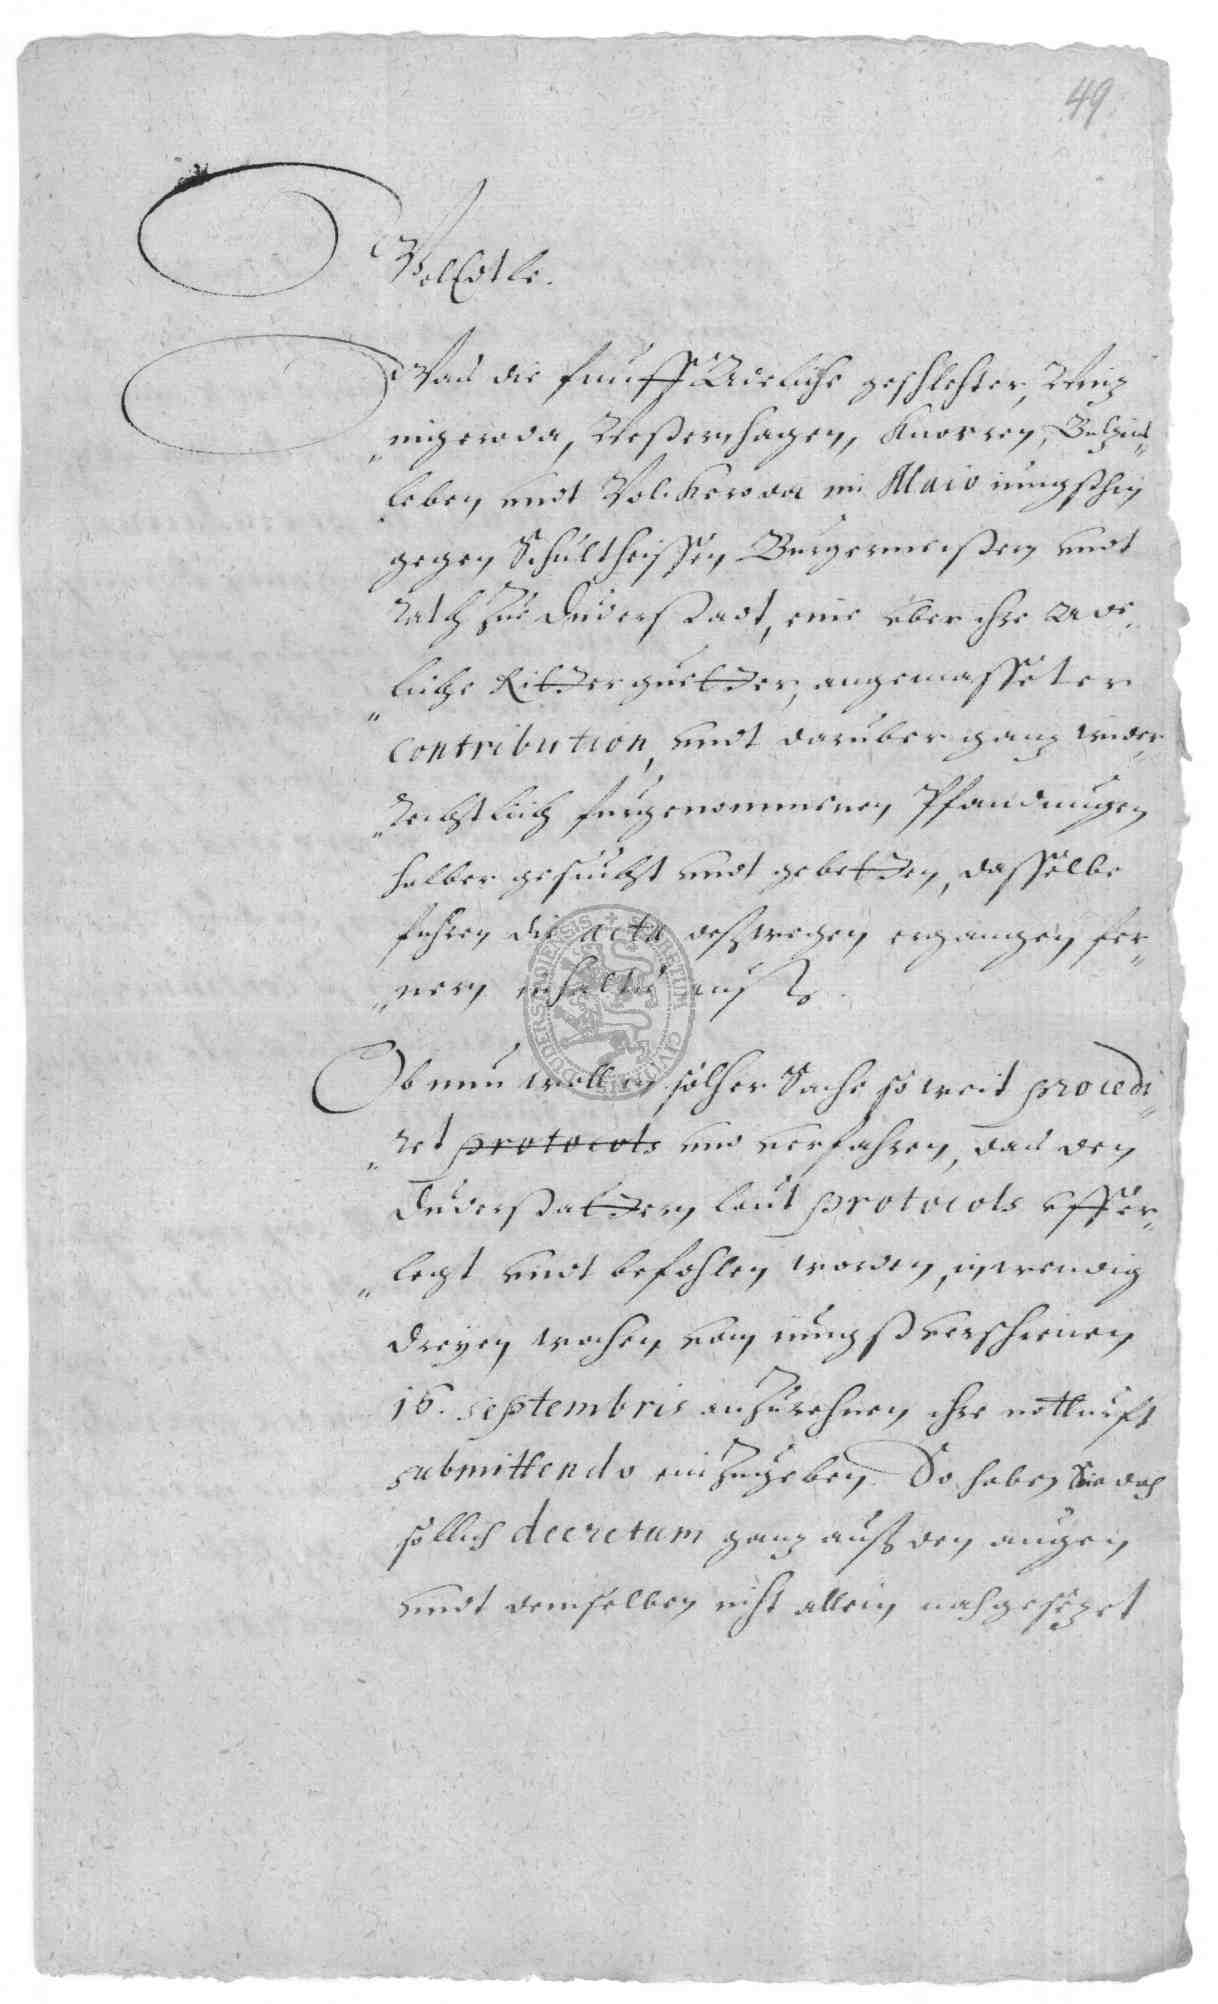 49
WolEdtle.
Was die funff Adeliche geschlechter, Wing
„nigeroda, Westernhagen, Knorren, Bultzings„
leben, undt Volkeroda im Maio iungsthin
gegen Schultheissen, Burgermeistern undt
Rath zue Duderstadt, eine über ihre Ade„
„liche Rittergüetter, angemasseter
contribution, undt darüber ganz wider„
„Rechtlich fürgenommenen Pfandungen
halber gesucht undt gebetten, dasselbe
führen die acta deßwegen ergangen, fer„
„nern inhalts auß.
Ob nun woll in solcher Sache so weit procedi„
„ret protocols und verfahren, das den
Duderstattern laut protocols uffer„
„legt undt befohlen worden, inwendig
dreyen wochen, vom iungst verschienen
16. septembris anzurechnen, ihre notturft
submittendo einzugeben. So haben Sie doch
sollich decretum ganz auß den augen
undt demselben nicht allein nachgesezet
SECRETUM CIVIUM DUDERSTADIENSIS